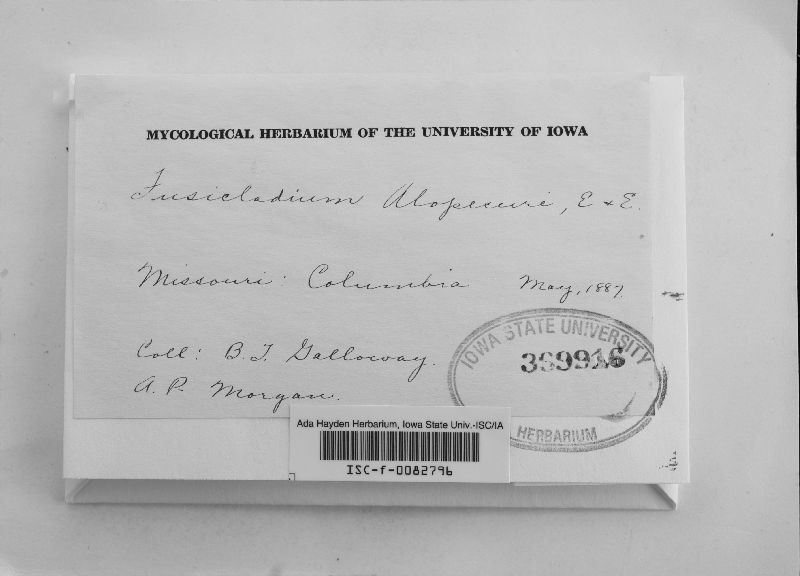 MYCOLOGICAL HERBARIUM OF THE UNIVERSITY OF IOWA
Fusicladium Alopecuri, E & E.
Missouri: Columbia May, 1887.
Coll: B. T. Galloway.
A. P. Morgan.
IOWA STATE UNIVERSITY
369916
HERBARIUM
Ada Hayden Herbarium, Iowa State Univ.-ISC/IA
ISC-f-0082796